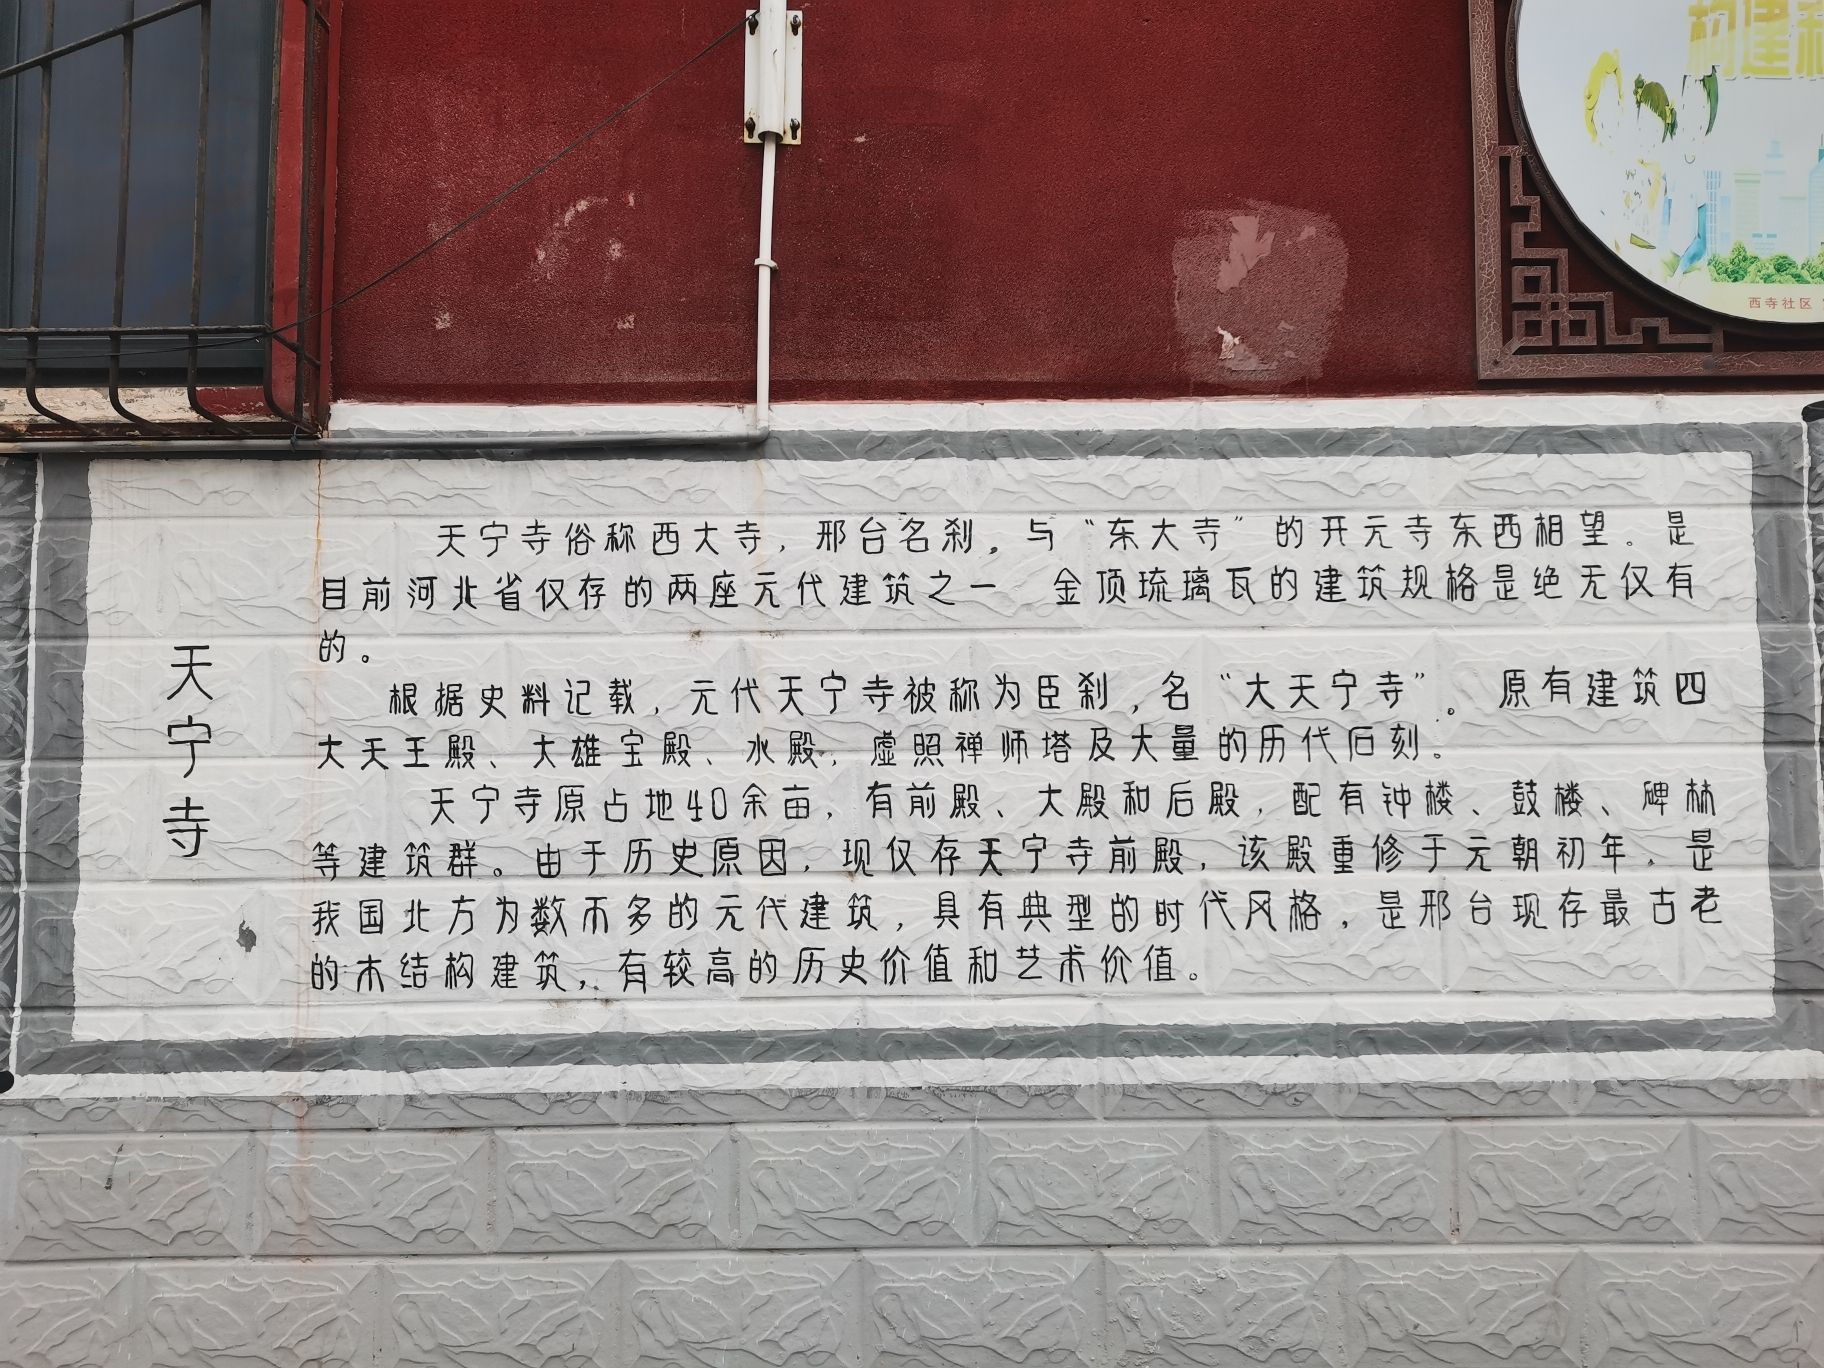 构建和
西寺社区
天宁寺
天宁寺俗称西大寺，邢台名刹。与“东大寺”的开元寺东西相望。是
目前河北省仅存的两座元代建筑之一 金顶琉璃瓦的建筑规格是绝无仅有
的。
根据史料记载，元代天宁寺被称为臣刹，名“大天宁寺”。原有建筑四
大天王殿、大雄宝殿、水殿，虚照禅师塔及大量的历代石刻。
天宁寺原占地40余亩，有前殿、大殿和后殿，配有钟楼、鼓楼、碑林
等建筑群。由于历史原因，现仅存天宁寺前殿，该殿重修于元朝初年，是
我国北方为数不多的元代建筑，具有典型的时代风格，是邢台现存最古老
的木结构建筑，有较高的历史价值和艺术价值。